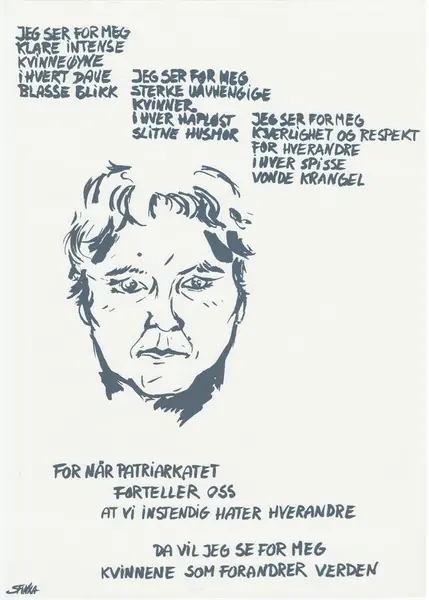 JEG SER FOR MEG
KLARE INTENSE
KVINNEØYNE
I HVERT DAUE
BLASSE BLIKK
JEG SER FØR MEG
STERKE UAVHENGIGE
KVINNER
I HVER HÅPLØST
SLITNE HUSMOR
JEG SER FOR MEG
KJÆRLIGHET OG RESPEKT
FOR HVERANDRE
I HVER SPISSE
VONDE KRANGEL
FOR NÅR PATRIARKATET
FORTELLER OSS
AT VI INSTENDIG HATER HVERANDRE
DA VIL JEG SE FOR MEG
KVINNENE SOM FORANDRER VERDEN